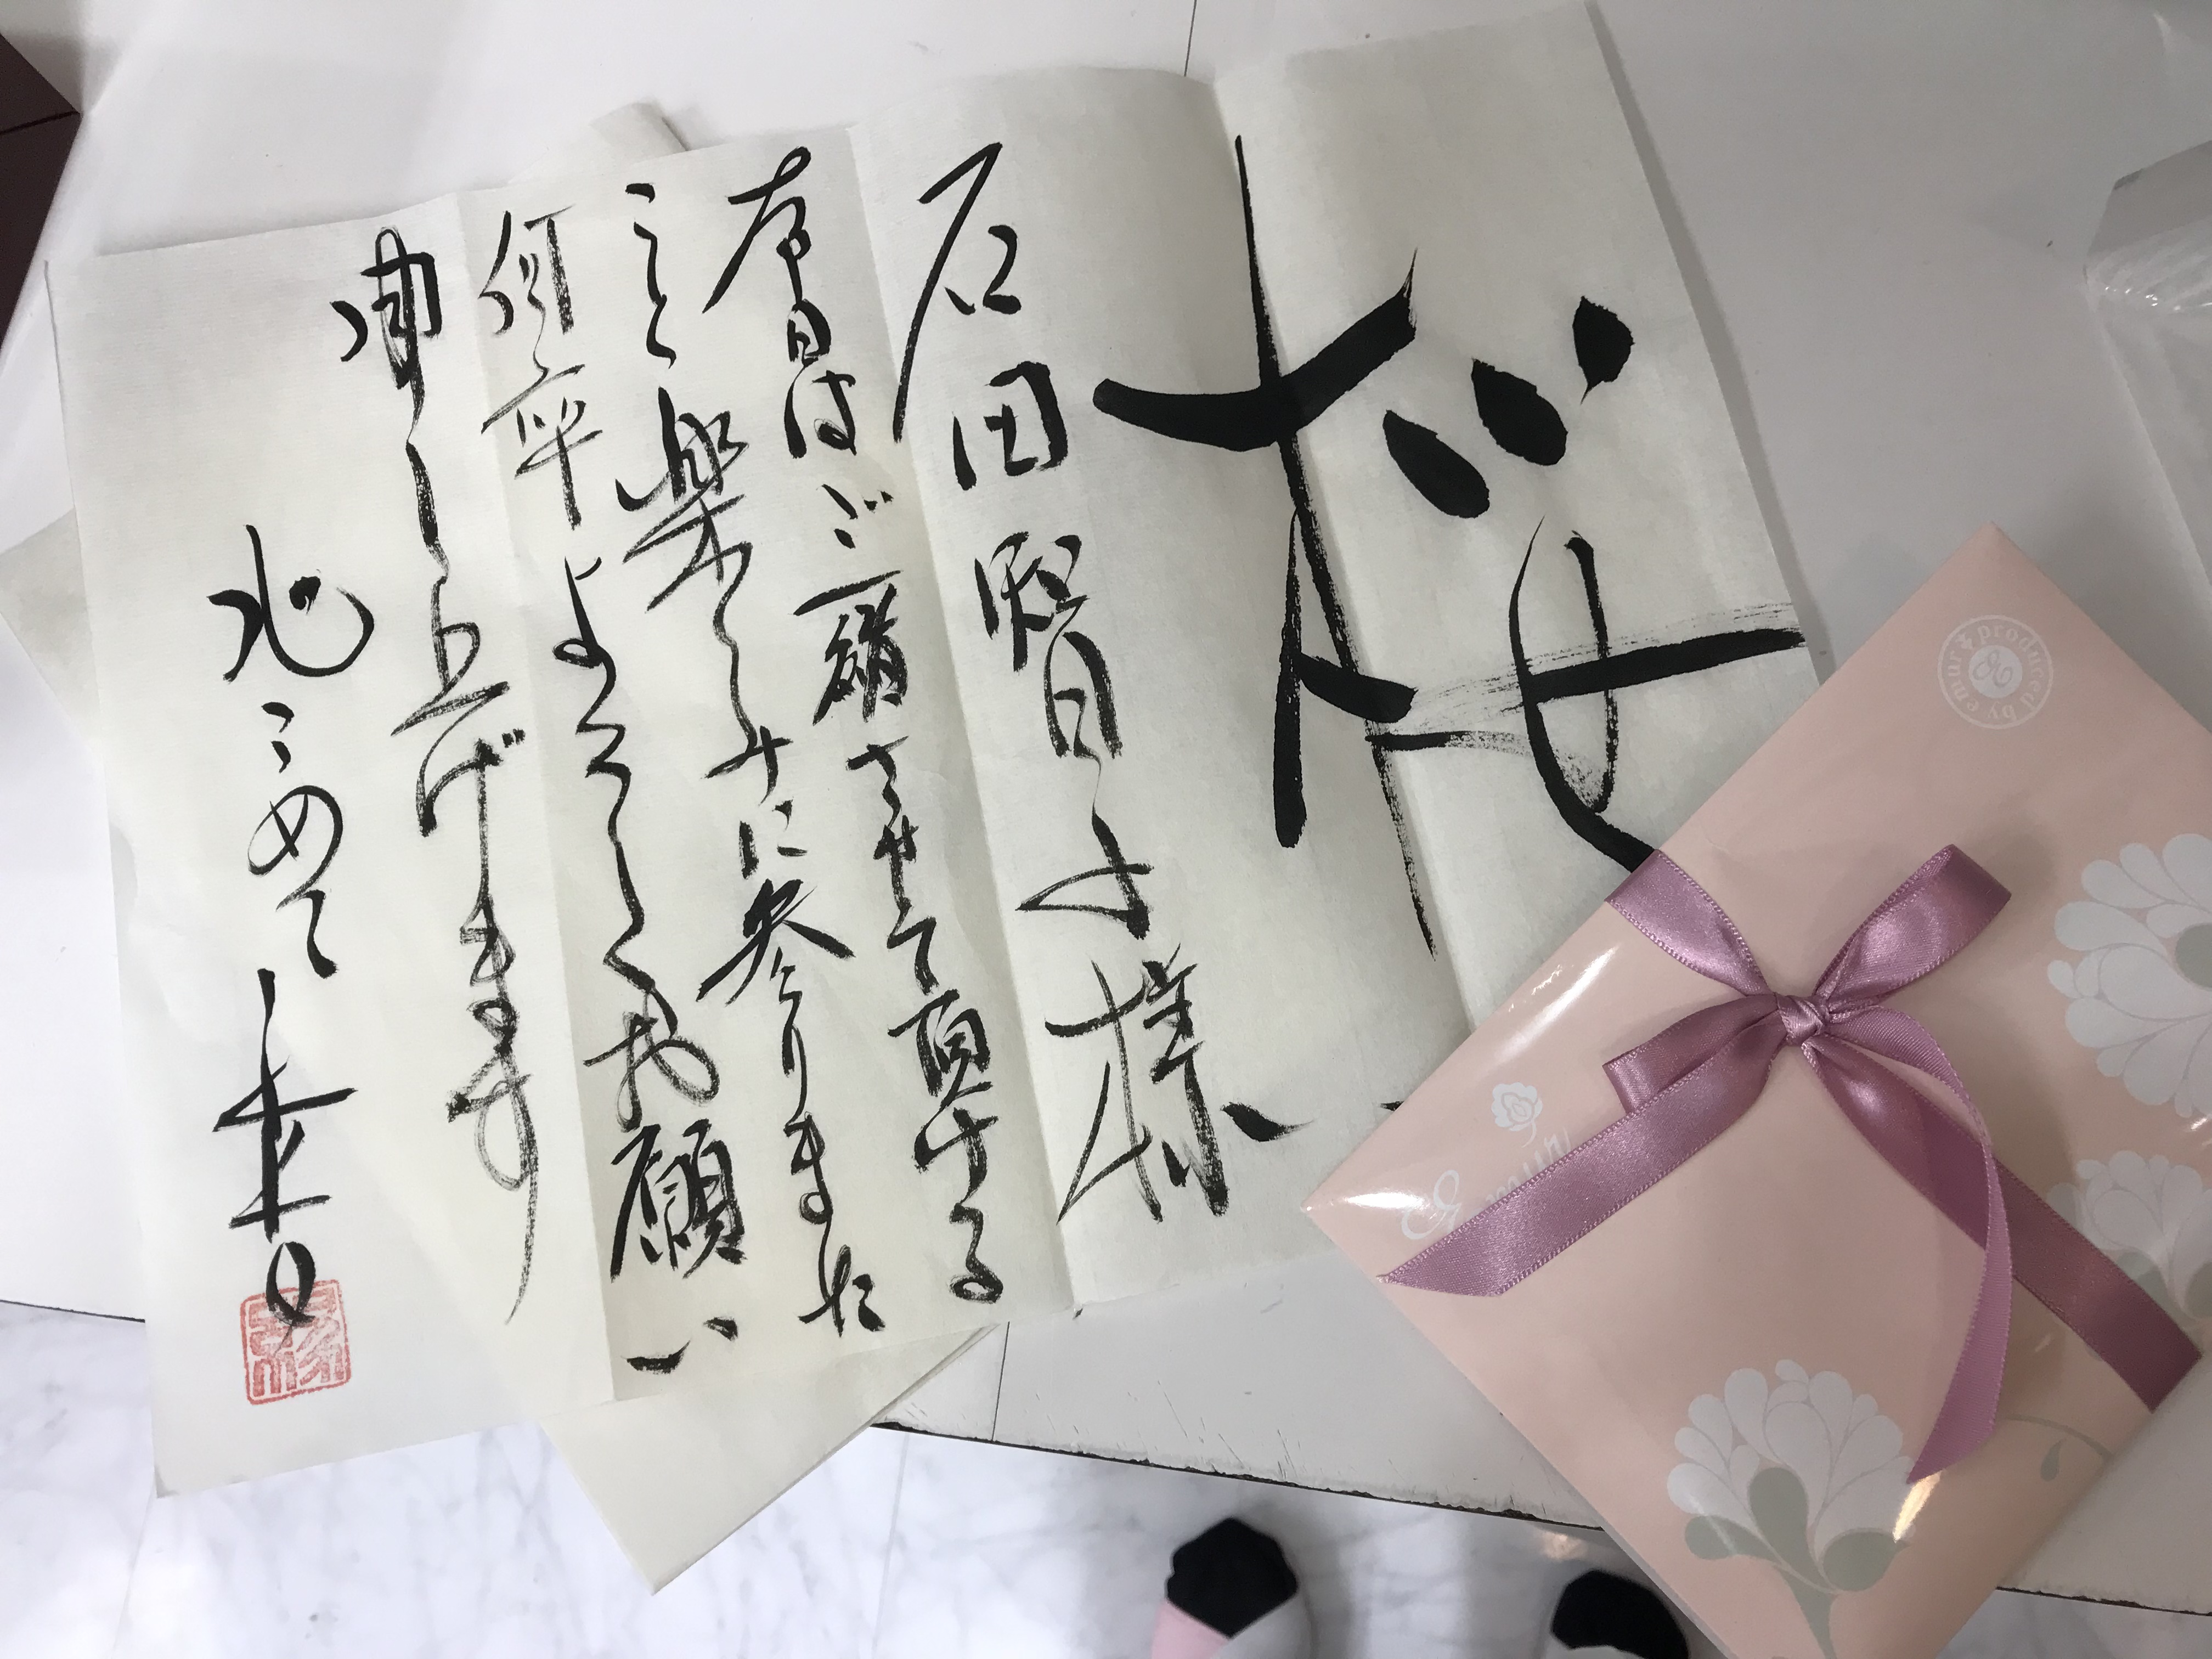 桜
石田賢子様
本日はご一緒させて頂ける
こと楽しみに参りました
何卒よろしくお願い
申し上げます
心こめて
produced by emur